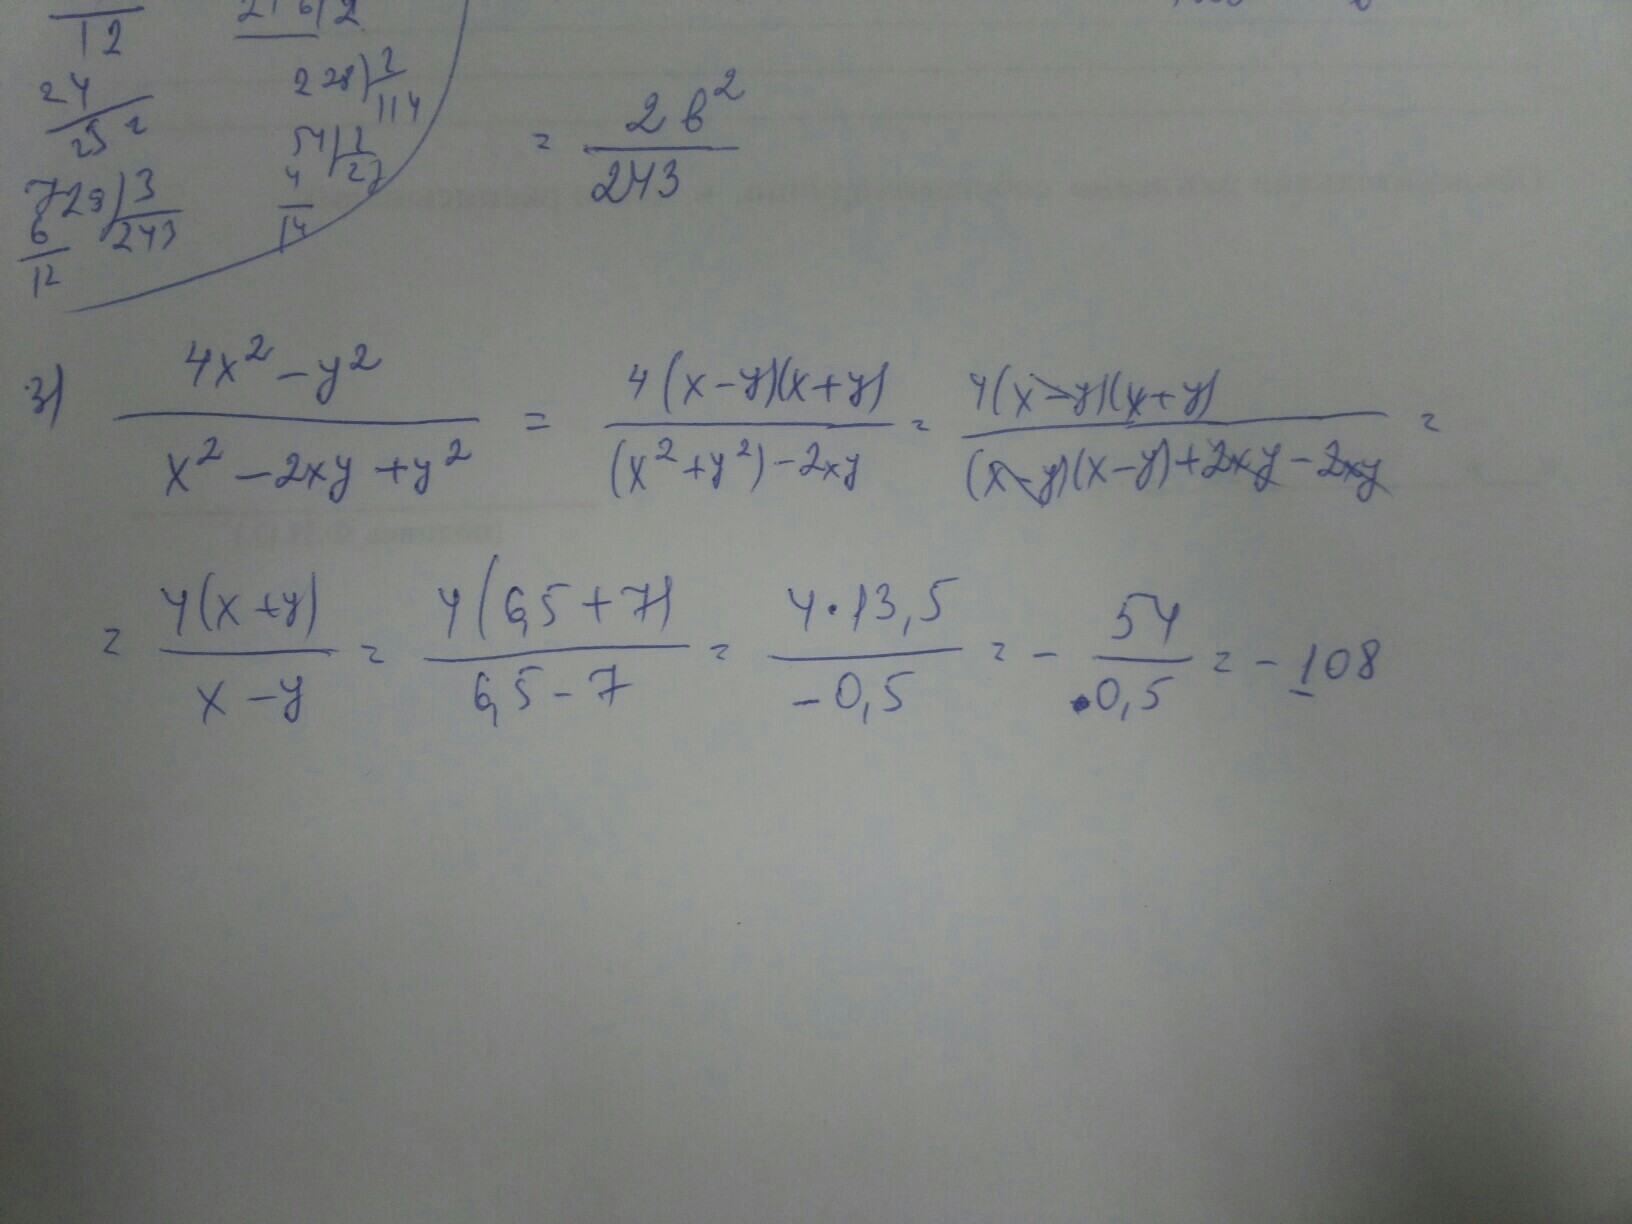 12
24
25 2
729 3
6 243
12
216 2
228 2
114
54 2
4 27
14
= 2в²/243
3) (4x² - y²)/(x² - 2xy + y²) = 4(x-y)(x+y)/((x²+y²) - 2xy) = 4(x-y)(x+y)/((x-y)(x-y)+2xy-2xy) =
= 4(x+y)/(x-y) = 4(6,5+7)/(6,5-7) = 4·13,5/(-0,5) = - 54/0,5 = -108